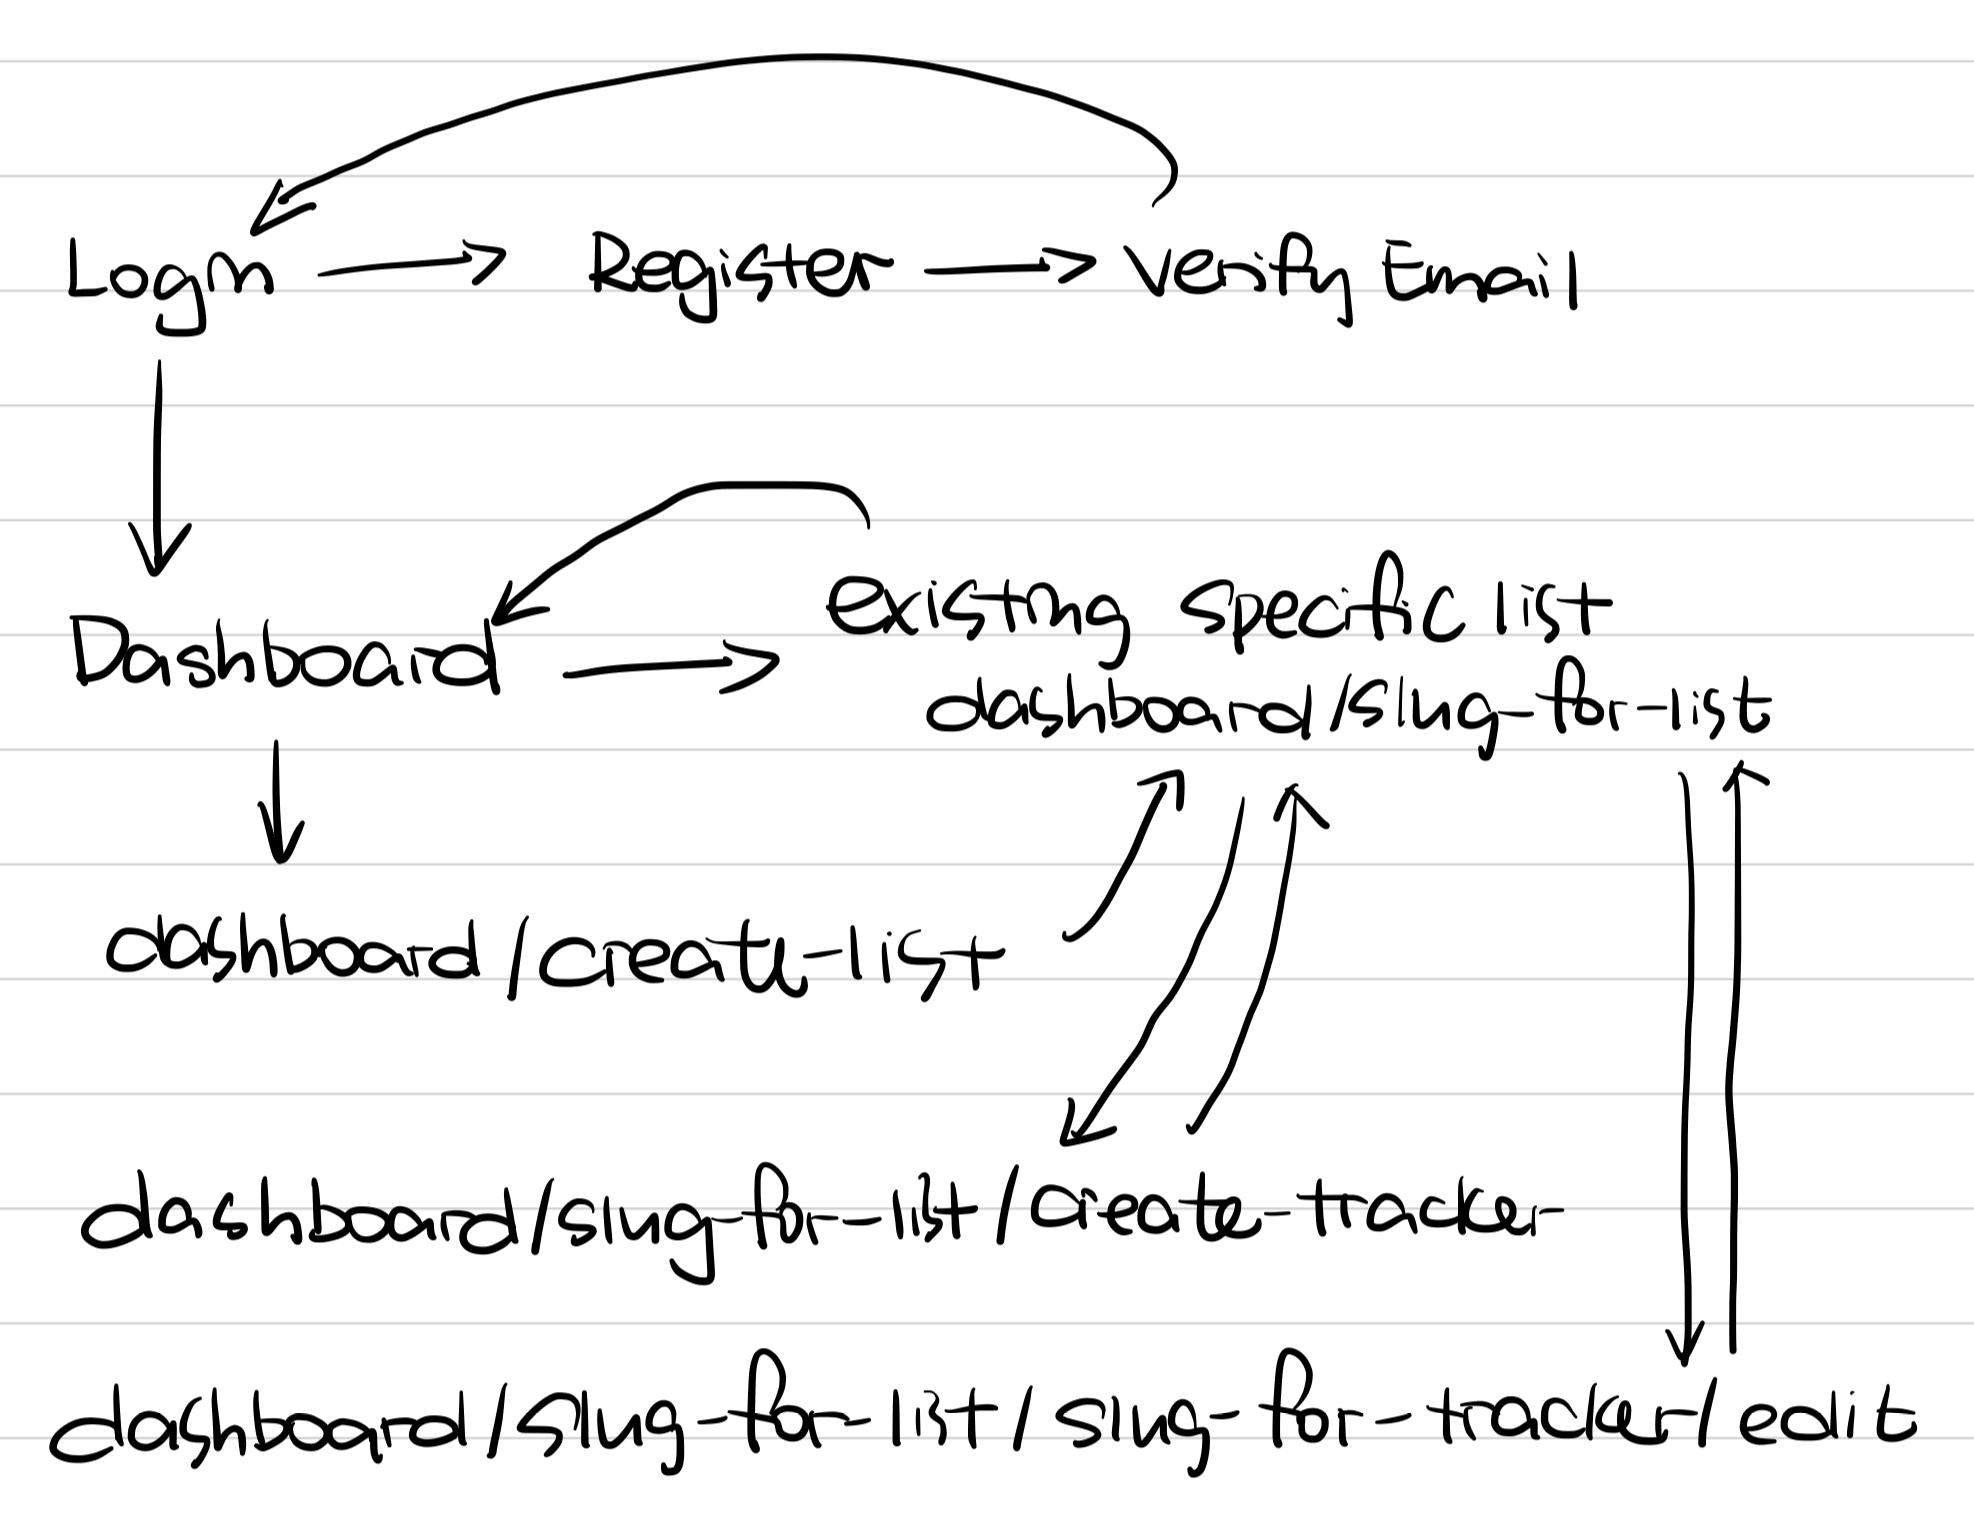 Login Register verify Email
Dashboard existing specific list
dashboard/slug-for-list
dashboard/create-list
dashboard/slug-for-list/create-tracker
dashboard/slug-for-list/slug-for-tracker/edit